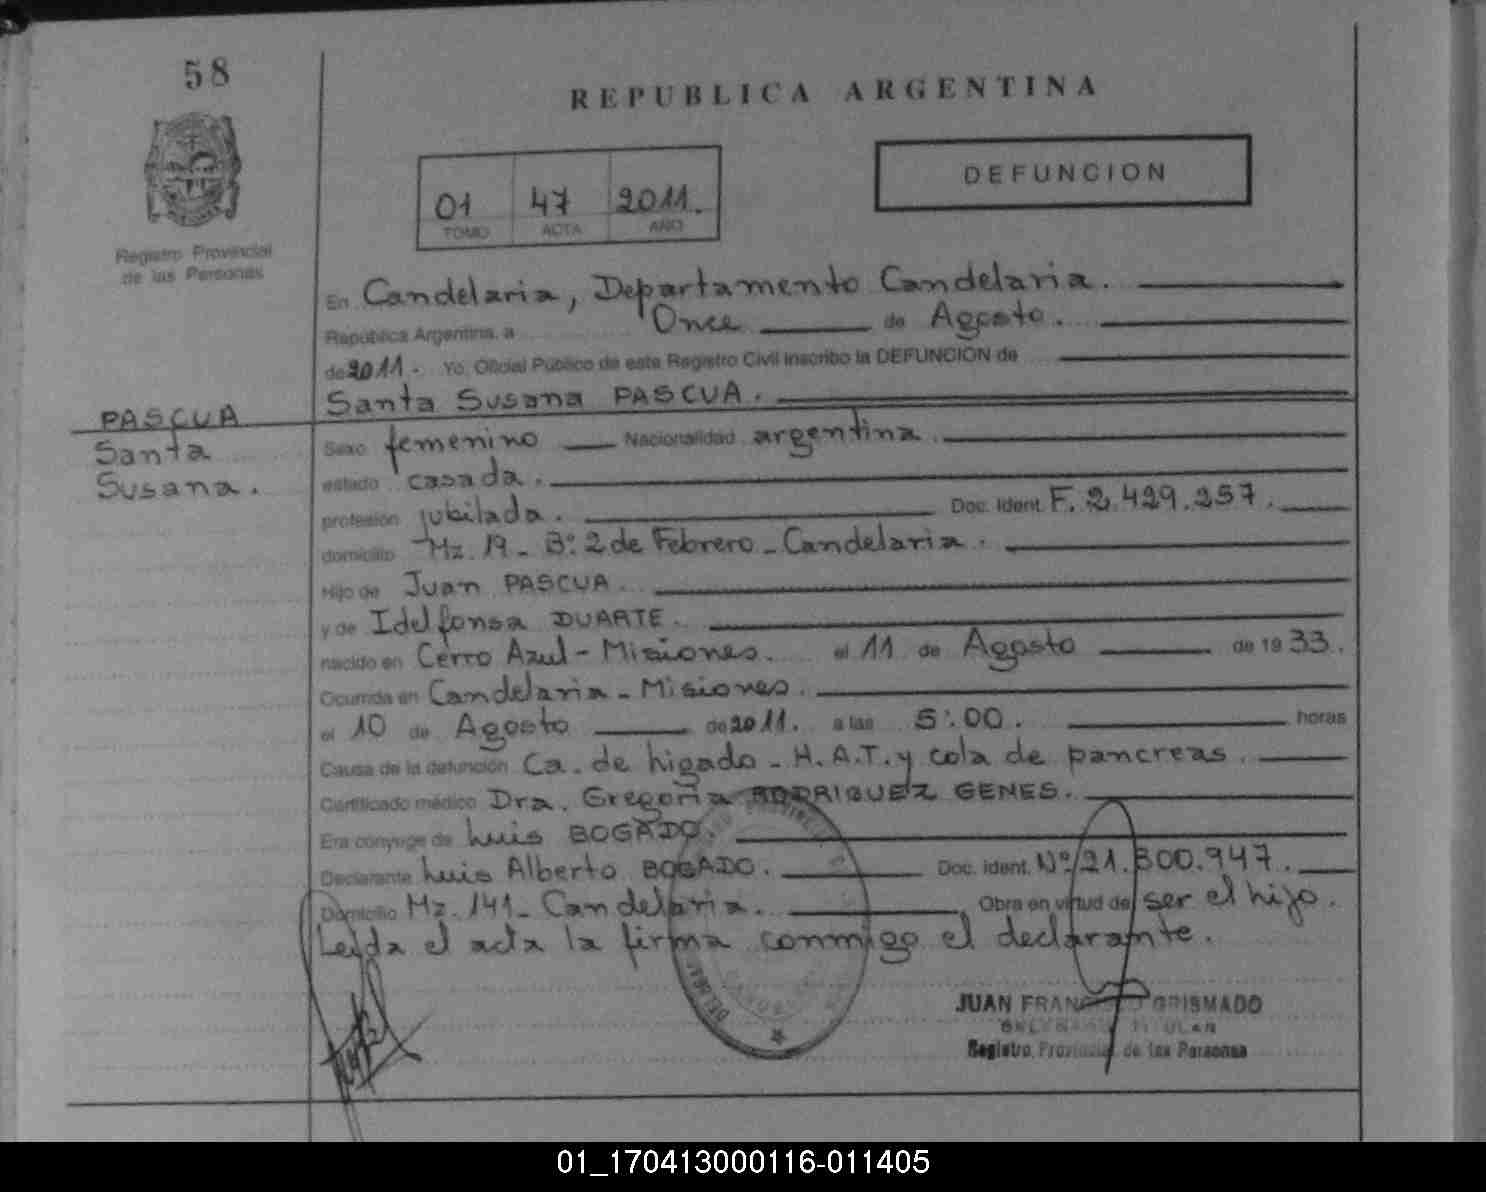 58
REPUBLICA ARGENTINA
DEFUNCION
01 47 2011.
TOMO ACTA AÑO
Registro Provincial
de las Personas
En Candelaria, Departamento Candelaria.
República Argentina, a Once de Agosto.
de 2011. Yo, Oficial Público de este Registro Civil inscribo la DEFUNCION de
Santa Susana PASCUA.
PASCUA
Santa
Susana.
Sexo femenino Nacionalidad argentina.
estado casada.
profesión jubilada. Doc. Ident. F. 2.429.257.
domicilio Mz. 19 - B: 2 de Febrero - Candelaria.
Hijo de Juan PASCUA.
y de Idelfonsa DUARTE.
nacido en Cerro Azul - Misiones. el 11 de Agosto de 19 33.
Ocurrida en Candelaria - Misiones.
el 10 de Agosto de 2011. a las 5:00. horas
Causa de la defunción Ca. de higado - H.A.T. y cola de pancreas.
Certificado médico Dra. Gregoria RODRIGUEZ GENES.
Era cónyuge de Luis BOGADO.
Declarante Luis Alberto BOGADO. Doc. ident. Nº 21.300.947.
Domicilio Mz. 141 - Candelaria. Obra en virtud de ser el hijo.
Leída el acta la firma conmigo el declarante.
JUAN FRANCISCO GRISMADO
TITULAR
Registro Provincial de las Personas
01_170413000116-011405